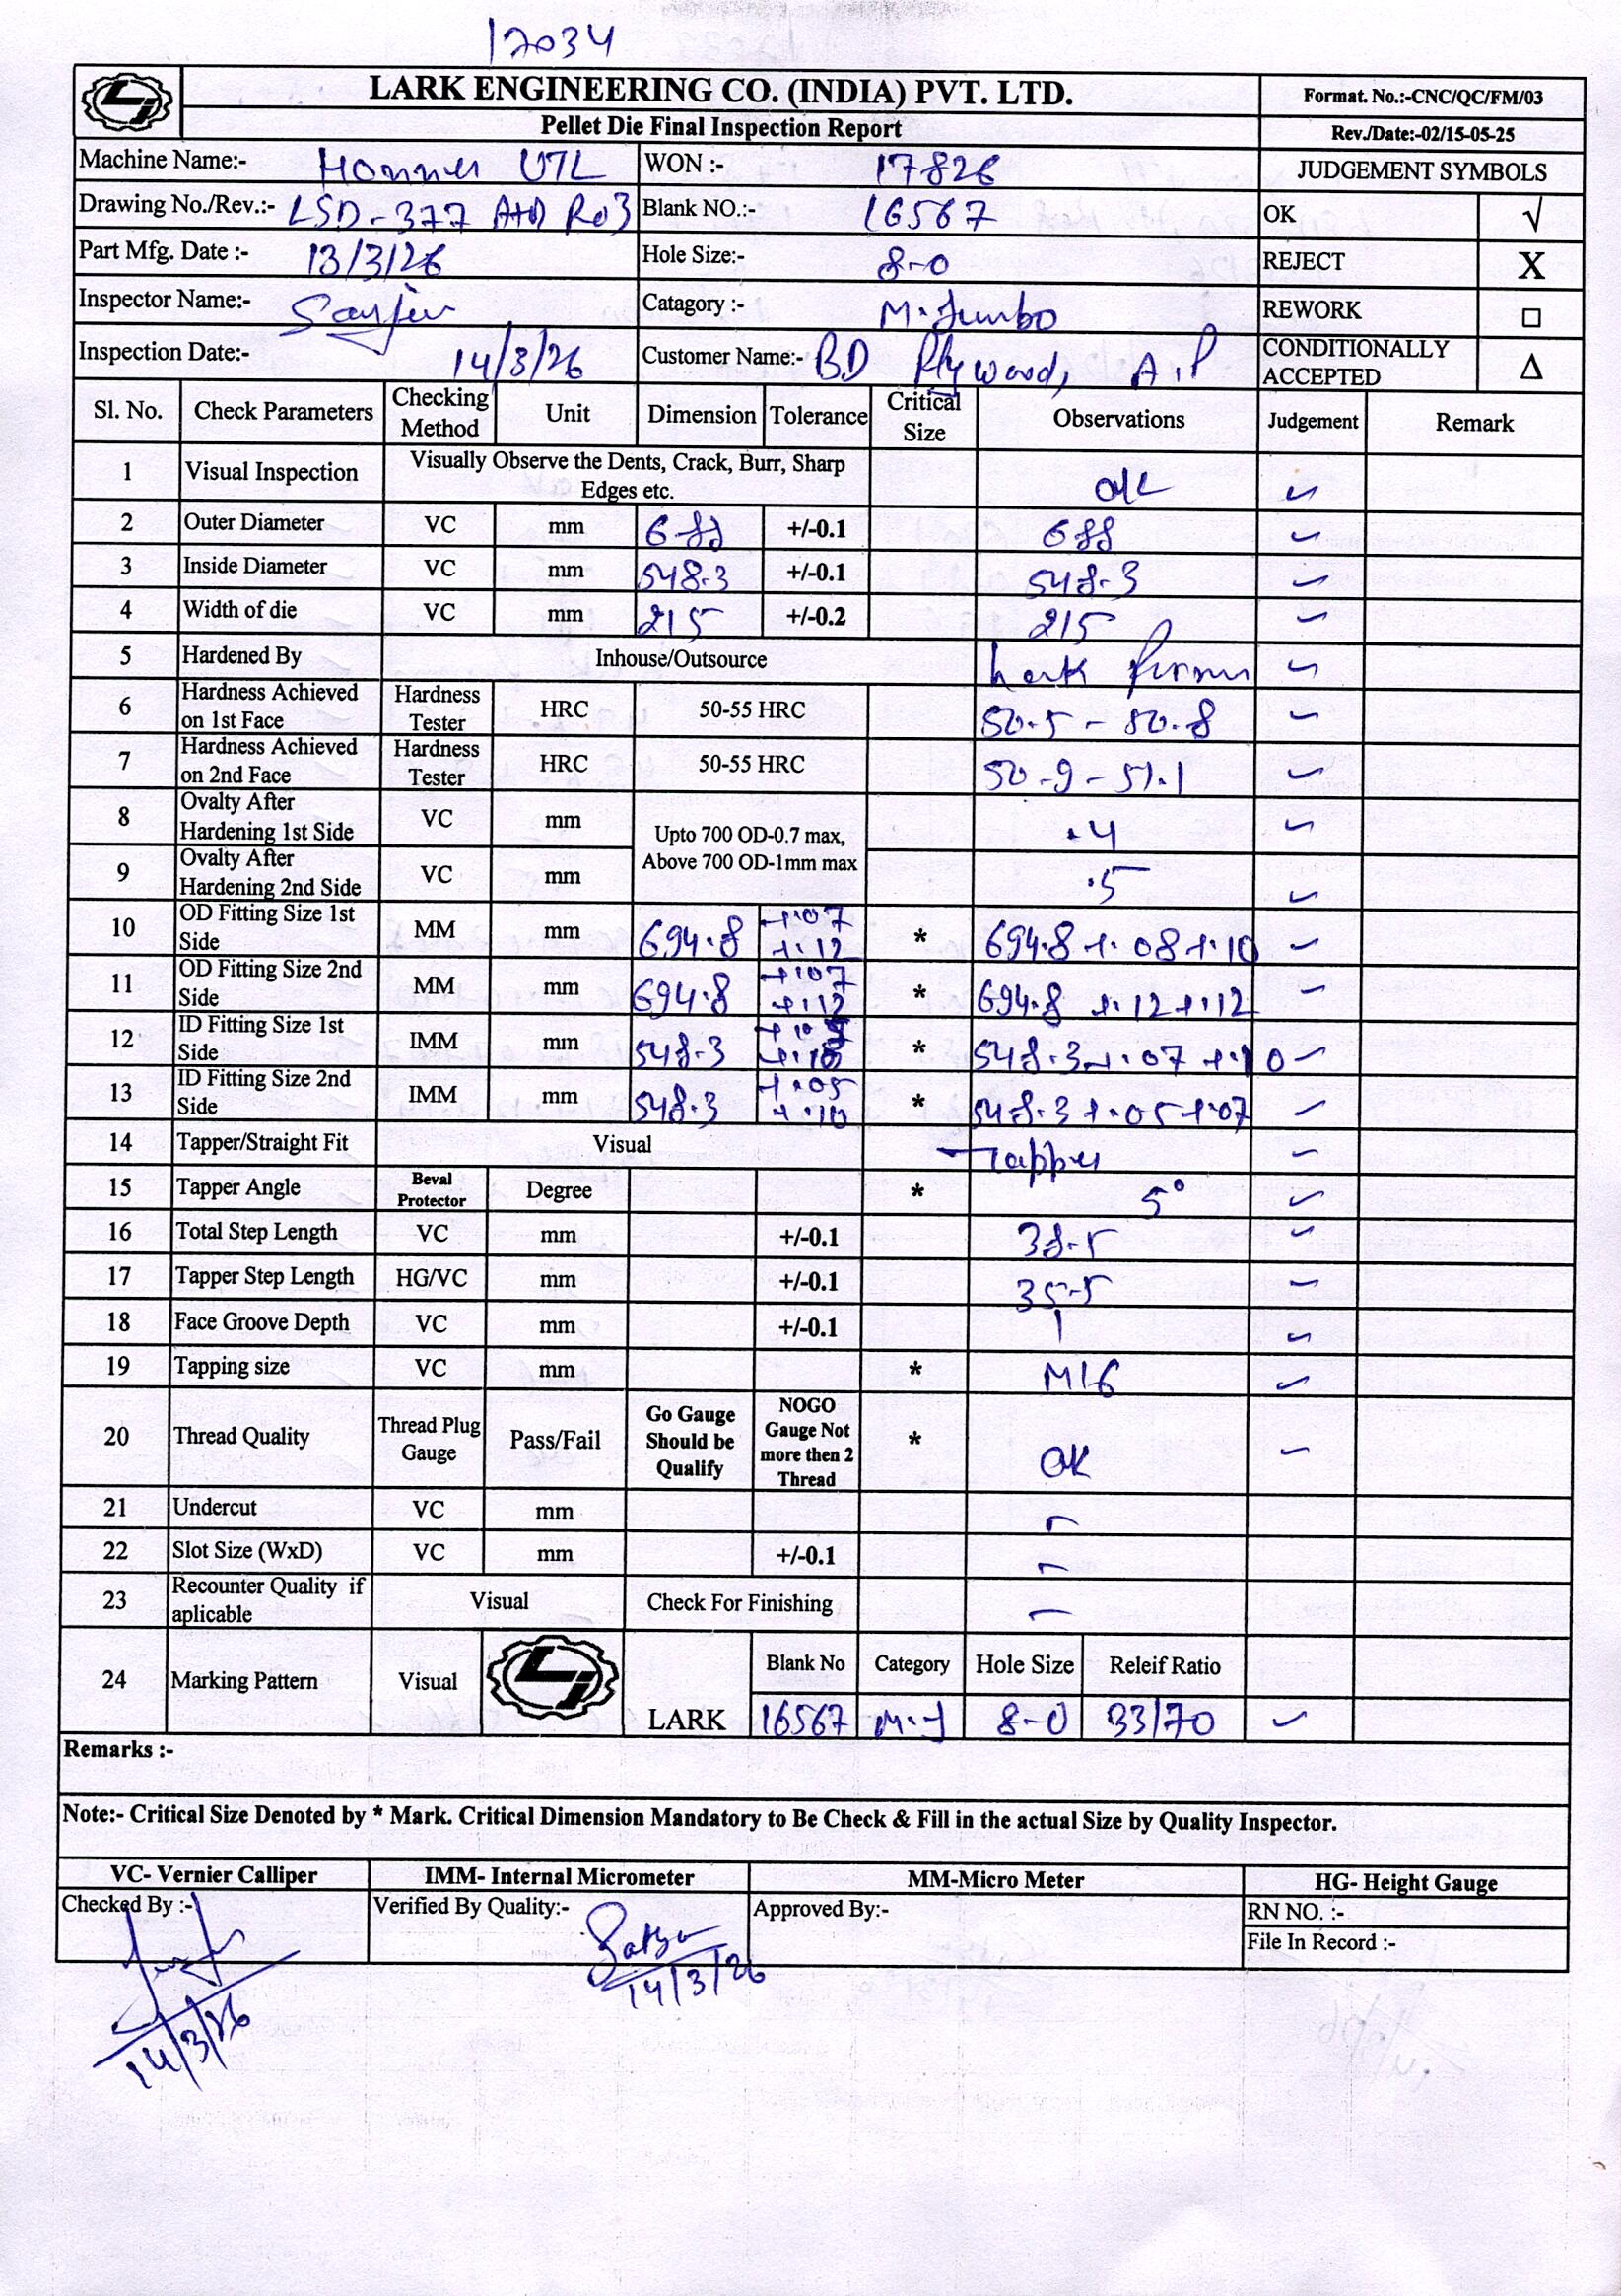 17034
LARK ENGINEERING CO. (INDIA) PVT. LTD.
Format. No.:-CNC/QC/FM/03
Pellet Die Final Inspection Report
Rev./Date:-02/15-05-25
Machine Name:- UTL WON :- 17826 JUDGEMENT SYMBOLS
Drawing No./Rev.:- LSD-377 R03 Blank NO.:- 16567 OK √
Part Mfg. Date :- 13/3/26 Hole Size:- 8-0 REJECT X
Inspector Name:- Catagory :- M. Jumbo REWORK □
Inspection Date:- 14/3/26 Customer Name:- BD Plywood, A.P CONDITIONALLY ACCEPTED Δ
Sl. No. Check Parameters Checking Method Unit Dimension Tolerance Critical Size Observations Judgement Remark
1 Visual Inspection Visually Observe the Dents, Crack, Burr, Sharp Edges etc. ok ✓
2 Outer Diameter VC mm 688 +/-0.1 688 ✓
3 Inside Diameter VC mm 548.3 +/-0.1 548.3 ✓
4 Width of die VC mm 215 +/-0.2 215 ✓
5 Hardened By Inhouse/Outsource Lark ✓
6 Hardness Achieved on 1st Face Hardness Tester HRC 50-55 HRC 50.5 - 50.8 ✓
7 Hardness Achieved on 2nd Face Hardness Tester HRC 50-55 HRC 50.9 - 51.1 ✓
8 Ovalty After Hardening 1st Side VC mm Upto 700 OD-0.7 max, Above 700 OD-1mm max .4 ✓
9 Ovalty After Hardening 2nd Side VC mm .5 ✓
10 OD Fitting Size 1st Side MM mm 694.8 +.07 +.12 * 694.8 +.08 +.10 ✓
11 OD Fitting Size 2nd Side MM mm 694.8 +.07 +.12 * 694.8 +.12 +.12 ✓
12 ID Fitting Size 1st Side IMM mm 548.3 +.05 +.10 * 548.3 +.07 +.10 ✓
13 ID Fitting Size 2nd Side IMM mm 548.3 +.05 +.10 * 548.3 +.05 +.07 ✓
14 Tapper/Straight Fit Visual Tapper ✓
15 Tapper Angle Beval Protector Degree * 5° ✓
16 Total Step Length VC mm +/-0.1 38.5 ✓
17 Tapper Step Length HG/VC mm +/-0.1 35.5 ✓
18 Face Groove Depth VC mm +/-0.1 1 ✓
19 Tapping size VC mm * M16 ✓
20 Thread Quality Thread Plug Gauge Pass/Fail Go Gauge Should be Qualify NOGO Gauge Not more then 2 Thread * OK ✓
21 Undercut VC mm -
22 Slot Size (WxD) VC mm +/-0.1 -
23 Recounter Quality if aplicable Visual Check For Finishing -
24 Marking Pattern Visual LARK Blank No Category Hole Size Releif Ratio
16567 M.J 8-0 33/70 ✓
Remarks :-
Note:- Critical Size Denoted by * Mark. Critical Dimension Mandatory to Be Check & Fill in the actual Size by Quality Inspector.
VC- Vernier Calliper IMM- Internal Micrometer MM-Micro Meter HG- Height Gauge
Checked By :- Verified By Quality:- Satya Approved By:- RN NO. :-
File In Record :-
14/3/26 14/3/26